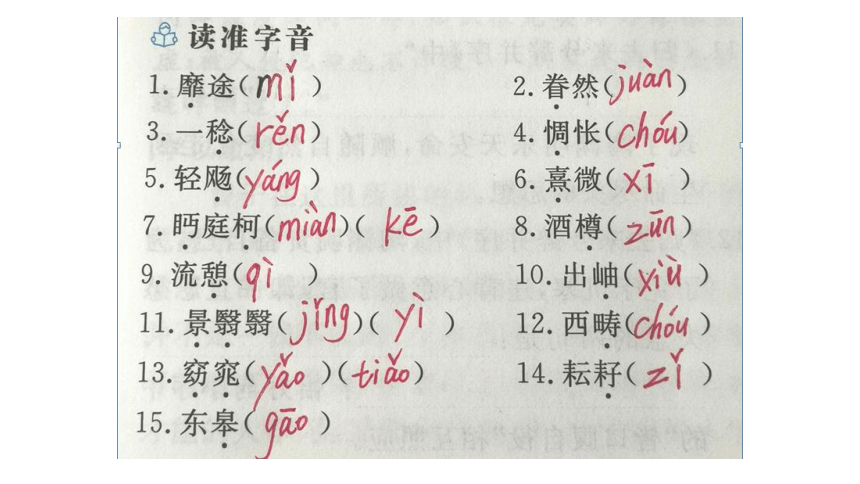 读准字音
1.靡途(mǐ) 2.眷然(juàn)
3.一稔(rěn) 4.惆怅(chóu)
5.轻飏(yáng) 6.熹微(xī)
7.眄庭柯(miàn)(kē) 8.酒樽(zūn)
9.流憩(qì) 10.出岫(xiù)
11.景翳翳(jǐng)(yì) 12.西畴(chóu)
13.窈窕(yǎo)(tiǎo) 14.耘耔(zǐ)
15.东皋(gāo)